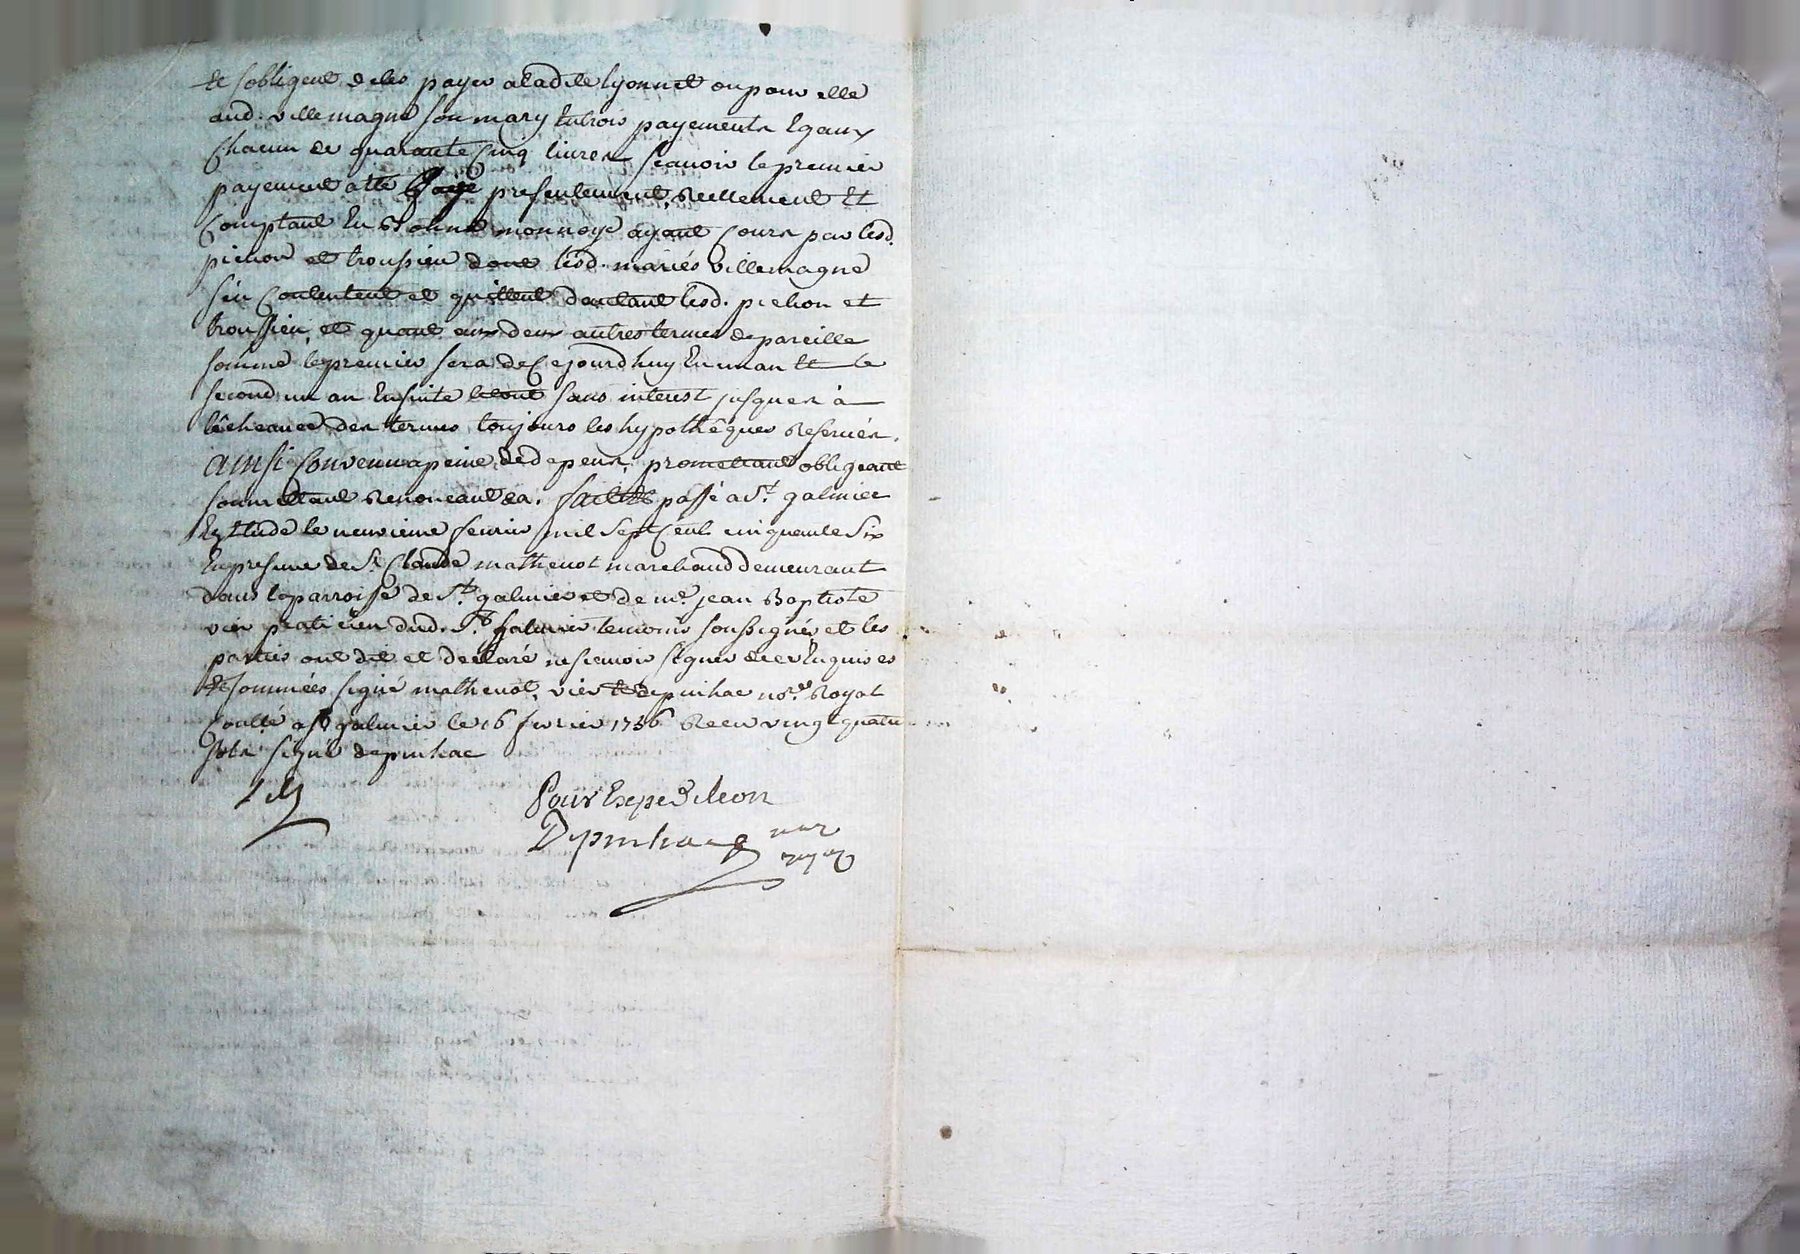 et sobligent de les payer a ladite lyonnet ou pour elle
aud. villemagne son mary en trois payements Egaux
Chacun de quarante Cinq livres scavoir le premier
payement a été payé presentement, Reellement Et
Comptant En Bonne monnoye ayant Cours par lesd.
pichon et troussieu dont lesd. mariés villemagne
s'en Contentent et quittent dautant lesd. pichon et
troussieu, et quant aux deux autres termes de pareille
somme le premier sera de Cejourdhuy En un an Et le
second un an Ensuite le tout sans interest jusques à
lêcheance des termes toujours les hypothêques Reservés.
ainsi Convenu a peine de depens, promettant obligeant
soumettant Renonceant &a. fait et passé a St. galmier
En Etude le neuvieme fevrier mil sept Cent cinquante Six
En presence de Sr. Claude mathevot marchand demeurant
dans la parroisse de St. galmier et de me. jean Baptiste
vier praticien dud. St. galmier temoins soussignés et les
parties ont dit et declaré ne scavoir signer de ce Enquises
et sommées signé mathevot, vier et depinhac nore. Royal
Contlé a St galmier le 16 fevrier 1756 Recu vingt quatre
sols signé depinhac
Pour Expedition
Depinhac nore
royal